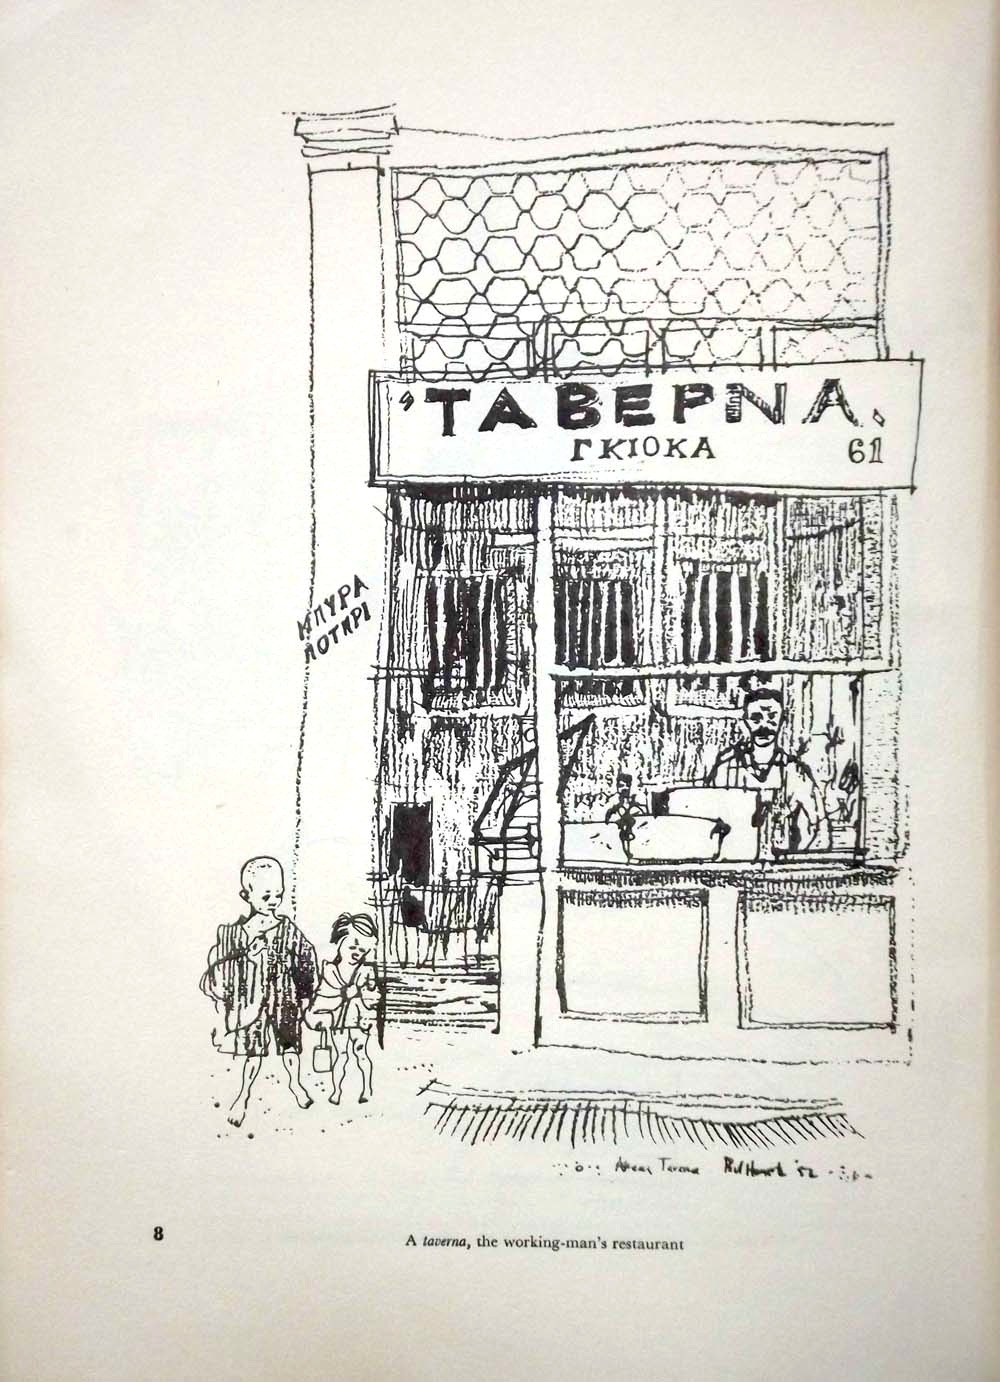 ΤΑΒΕΡΝΑ
ΓΚΙΟΚΑ 61
ΜΠΥΡΑ
ΠΟΤΗΡΙ
Taverna '52
8
A taverna, the working-man's restaurant